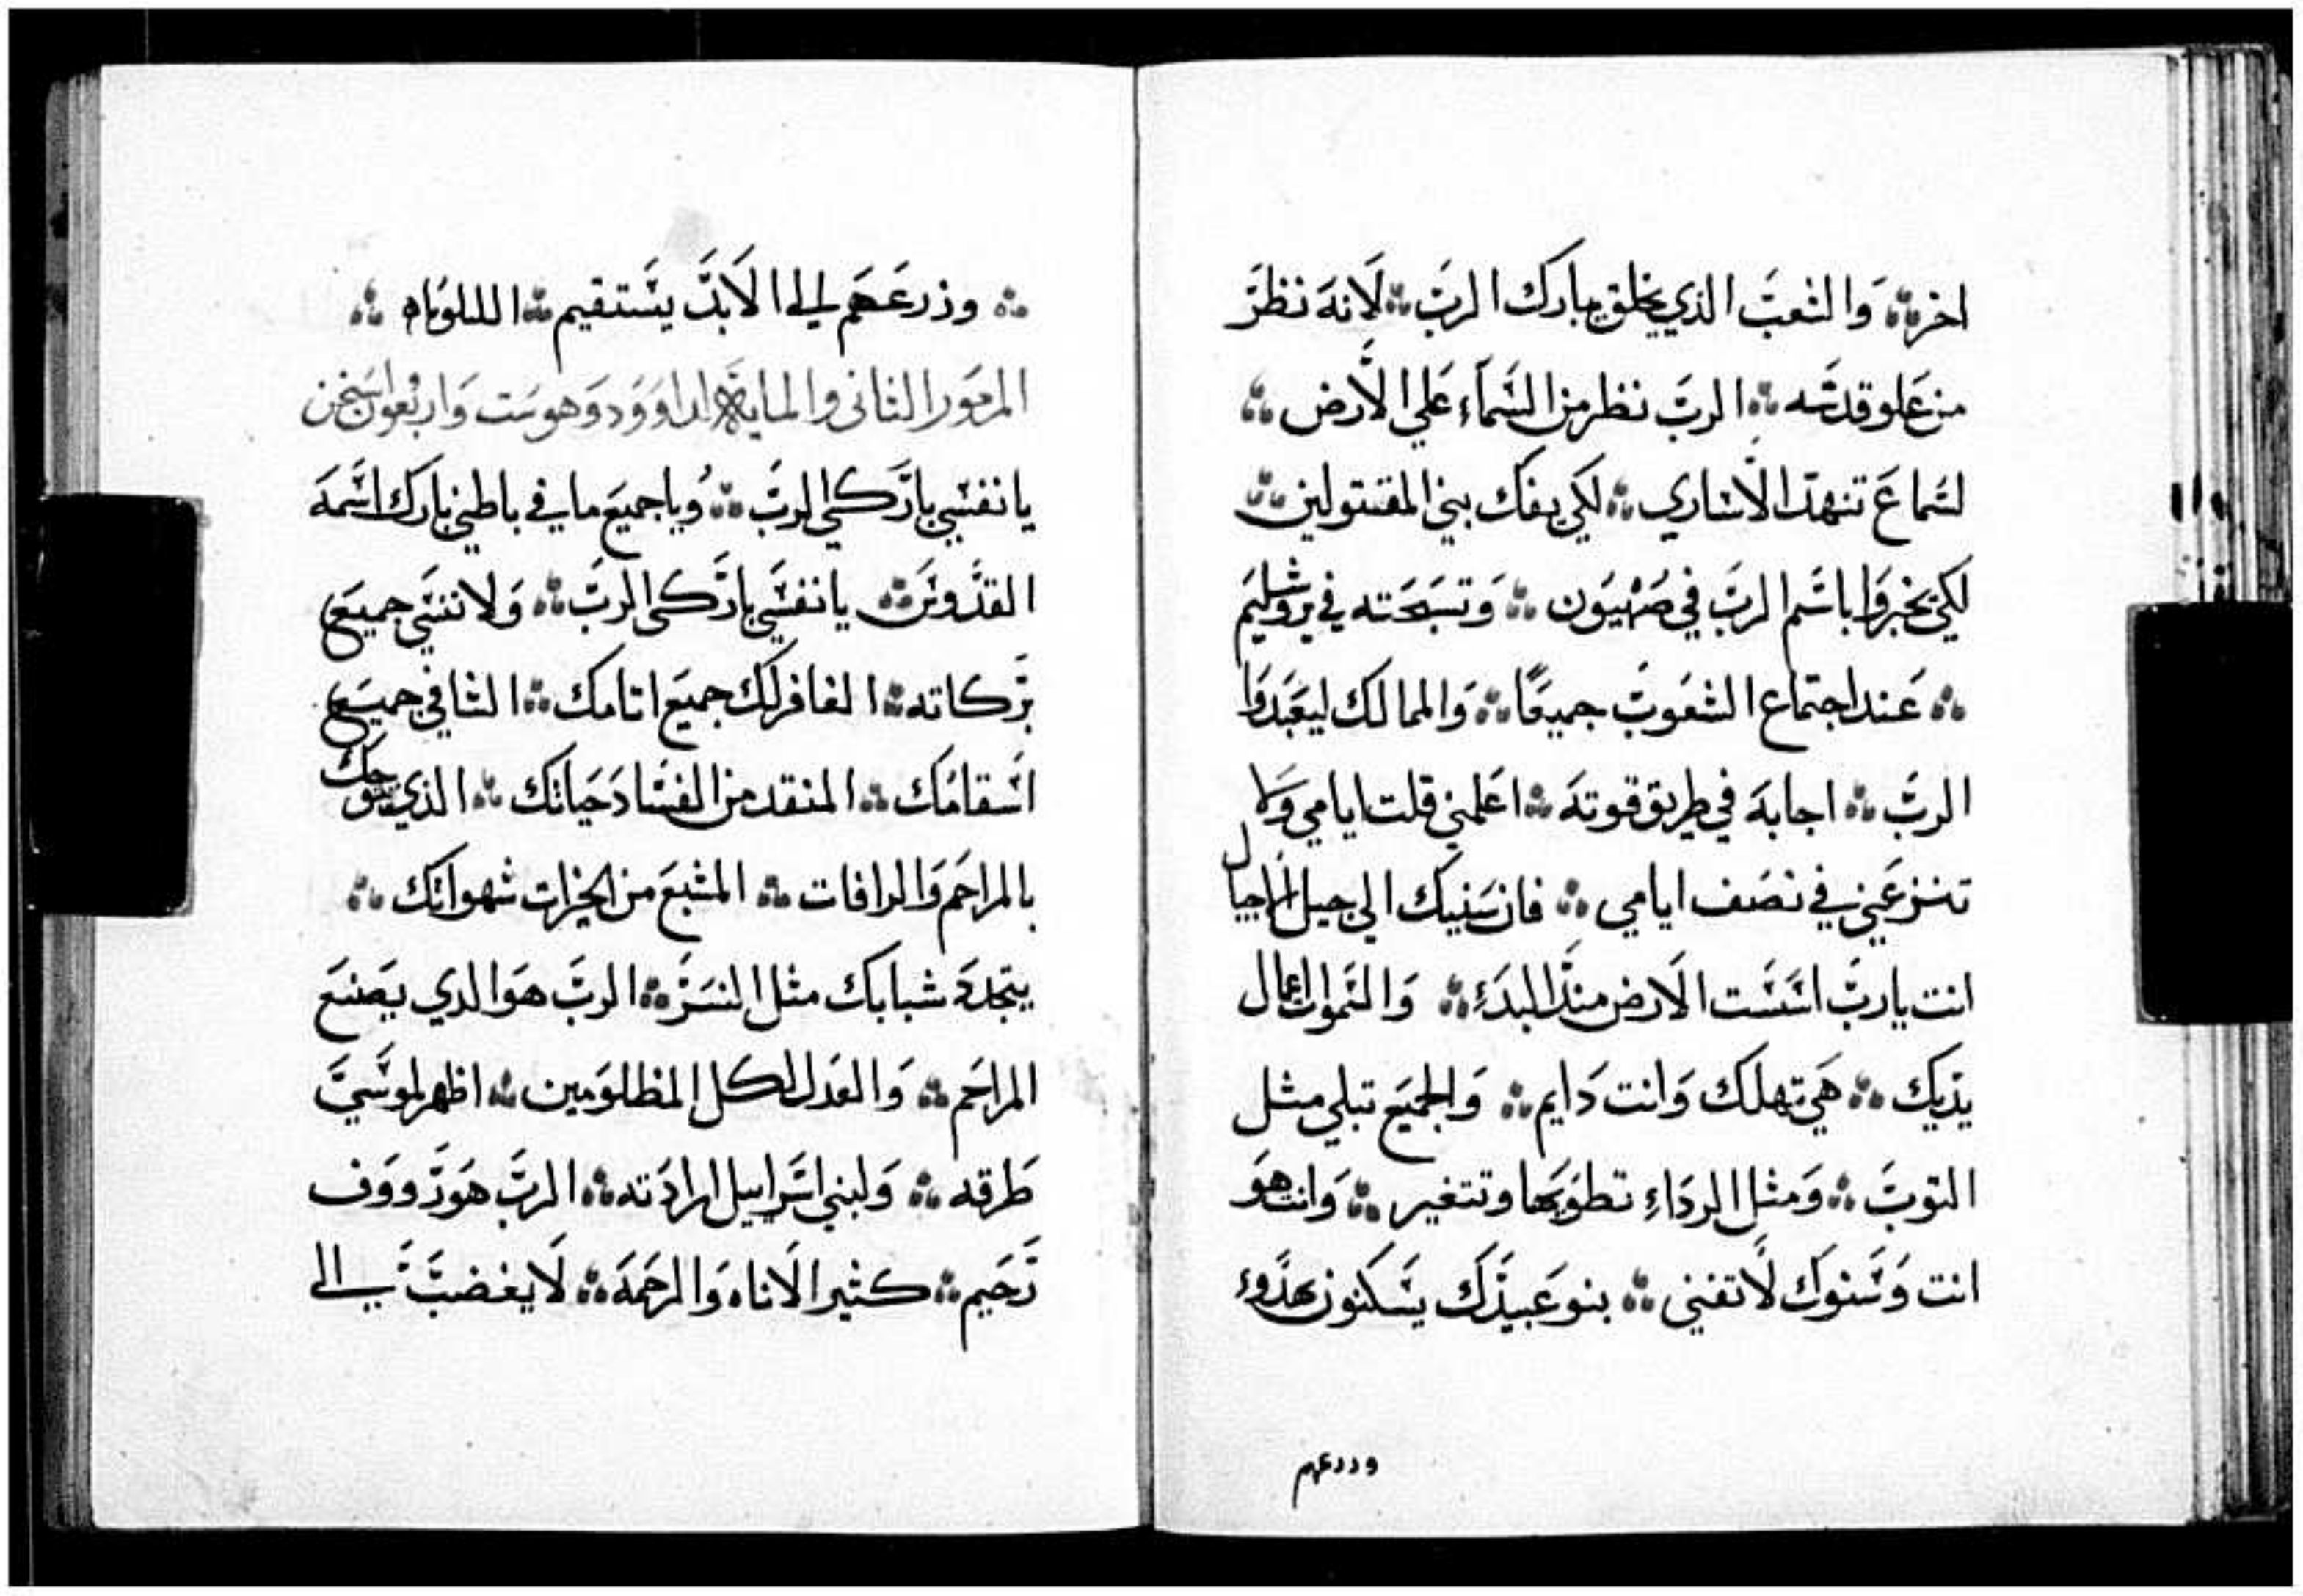 اخر ⁘ وَالشعبَ الذي يخلق يبارك الربَ ⁘ لَانهَ نظرَ
من عَلو قدسَه ⁘ الربَ نظر من السَماَء عَلي الَارض ⁘
لسَماعَ تنهدَ الَاساري ⁘ لكي يفك بني المقتولين ⁘
لكي يخبروَا باسَم الربَ في صَهيَون ⁘ وَتسَبحَته في يروَشليَم
⁘ عَند اجتماع الشعَوبَ جميعًا ⁘ وَالممالك ليعَبَدوَا
الربَ ⁘ اجابهَ في طريق قوتهَ ⁘ اعَلمني قلت ايامي وَلا
تنزعَني في نصَف ايامي ⁘ فان سَنيك الي جيل الَاجيال
انت ياربَ اسَسَت الَارض منذ البدَء ⁘ وَالسَموات اعمال
يدَيك ⁘ هَي تهلك وَانت دَايم ⁘ وَالجميَع تبلي مثل
الثوبَ ⁘ وَمثل الردَاءِ تطوَيهَا وتتغير ⁘ وَانت هوَ
انت وَسَنوَك لَا تفني ⁘ بنو عَبيدَك يسَكنون بهدَوء
وررعهم
⁘ وذرعَهَم الي الَابدَ يسَتقيم ⁘ الليلوَياه ⁘
المزمَور الثاني والمايهَ لداوَوَد وَهو سَت وَاربَعون استخن
يا نفسَي بارَكي الربَ ⁘ وَيا جميعَ ما في باطني بارَك اسَمهَ
القدَوسَ ⁘ يا نفسَي بارَكي الربَ ⁘ وَلا تنسَي جميَع
برَكاته ⁘ الغافر لك جميَع اثامك ⁘ الشافي جميَع
اسَقامَك ⁘ المنقد من الفسَادَ حَياتك ⁘ الذي يتوجك
بالمراحَم وَالرافات ⁘ المشبعَ من الخيرات شهواتك ⁘
يتجددَ شبابَك مثل النسَرَ ⁘ الربَ هوَ الدي يصَنعَ
المراحَم ⁘ وَالعَدل لكل المظلوَمين ⁘ اظهر لموسَيَ
طَرقه ⁘ وَلبني اسَراييل ارادَته ⁘ الربَ هوَ رَووَف
رَحَيم ⁘ كثير الَاناه وَالرحَمهَ ⁘ لَا يغضبَ الي